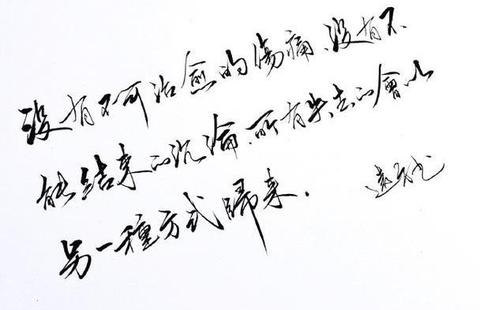 没有不可治愈的傷痛,没有不
能結束的沉淪,所有失去的會以
另一種方式歸来.